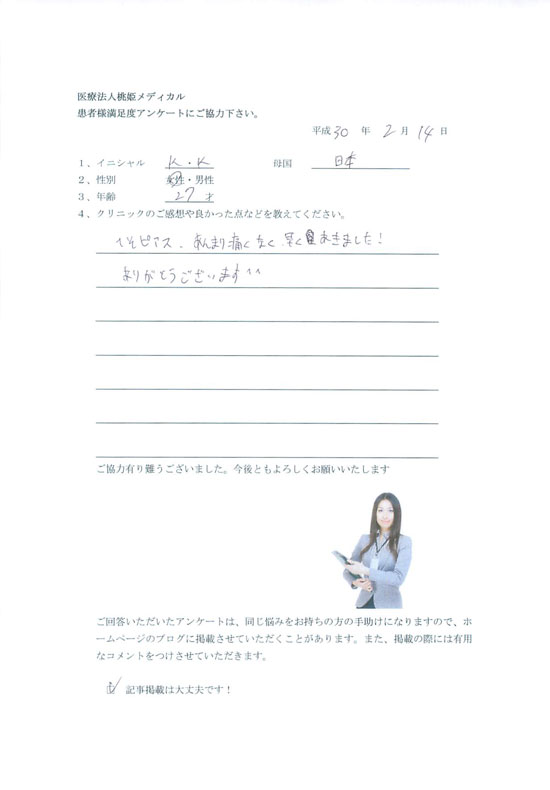 医療法人桃姫メディカル
患者様満足度アンケートにご協力下さい。
平成 30 年 2 月 14 日
1、イニシャル K・K 母国 日本
2、性別 女性・男性
3、年齢 27 才
4、クリニックのご感想や良かった点などを教えてください。
へそピアス、あんまり痛くなく、早くあきました!
ありがとうございます^^
ご協力有り難うございました。今後ともよろしくお願いいたします
ご回答いただいたアンケートは、同じ悩みをお持ちの方の手助けになりますので、ホ
ームページのブログに掲載させていただくことがあります。また、掲載の際には有用
なコメントをつけさせていただきます。
記事掲載は大丈夫です!